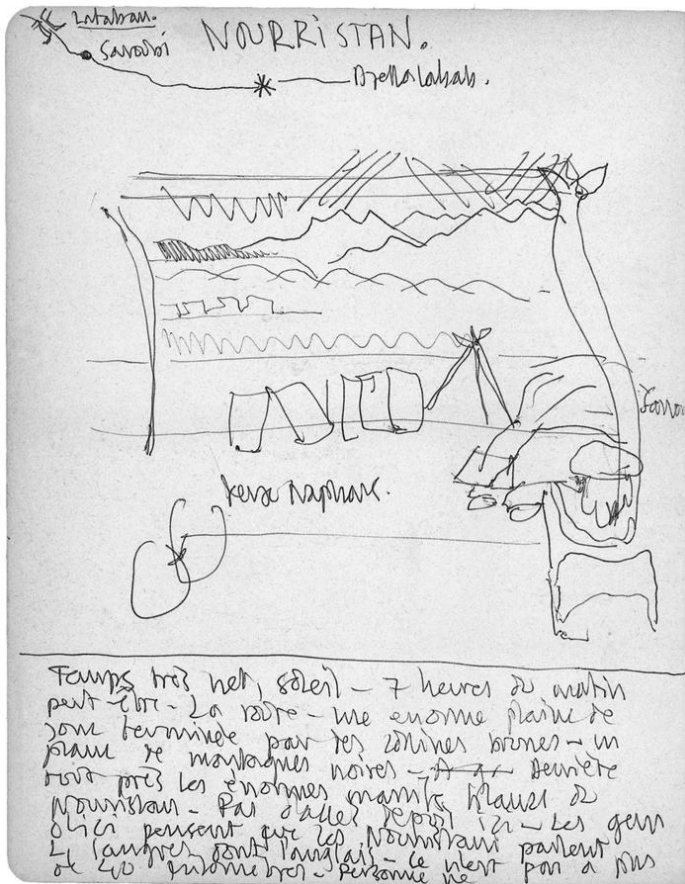 Lataban.
Saroubi
NOURRISTAN.
Djellalabab.
Temps très net, soleil - 7 heures du matin
peut-être - La route - une énorme plaine de
jonc terminée par des collines brunes - un
plan de montagnes noires - Derrière
tout près les énormes massifs blancs du
Nourristan - Pas d'accès depuis ici - Les gens
d'ici pensent que les Nourristani parlent
pas à plus
de 40 kilomètres - Personne ne